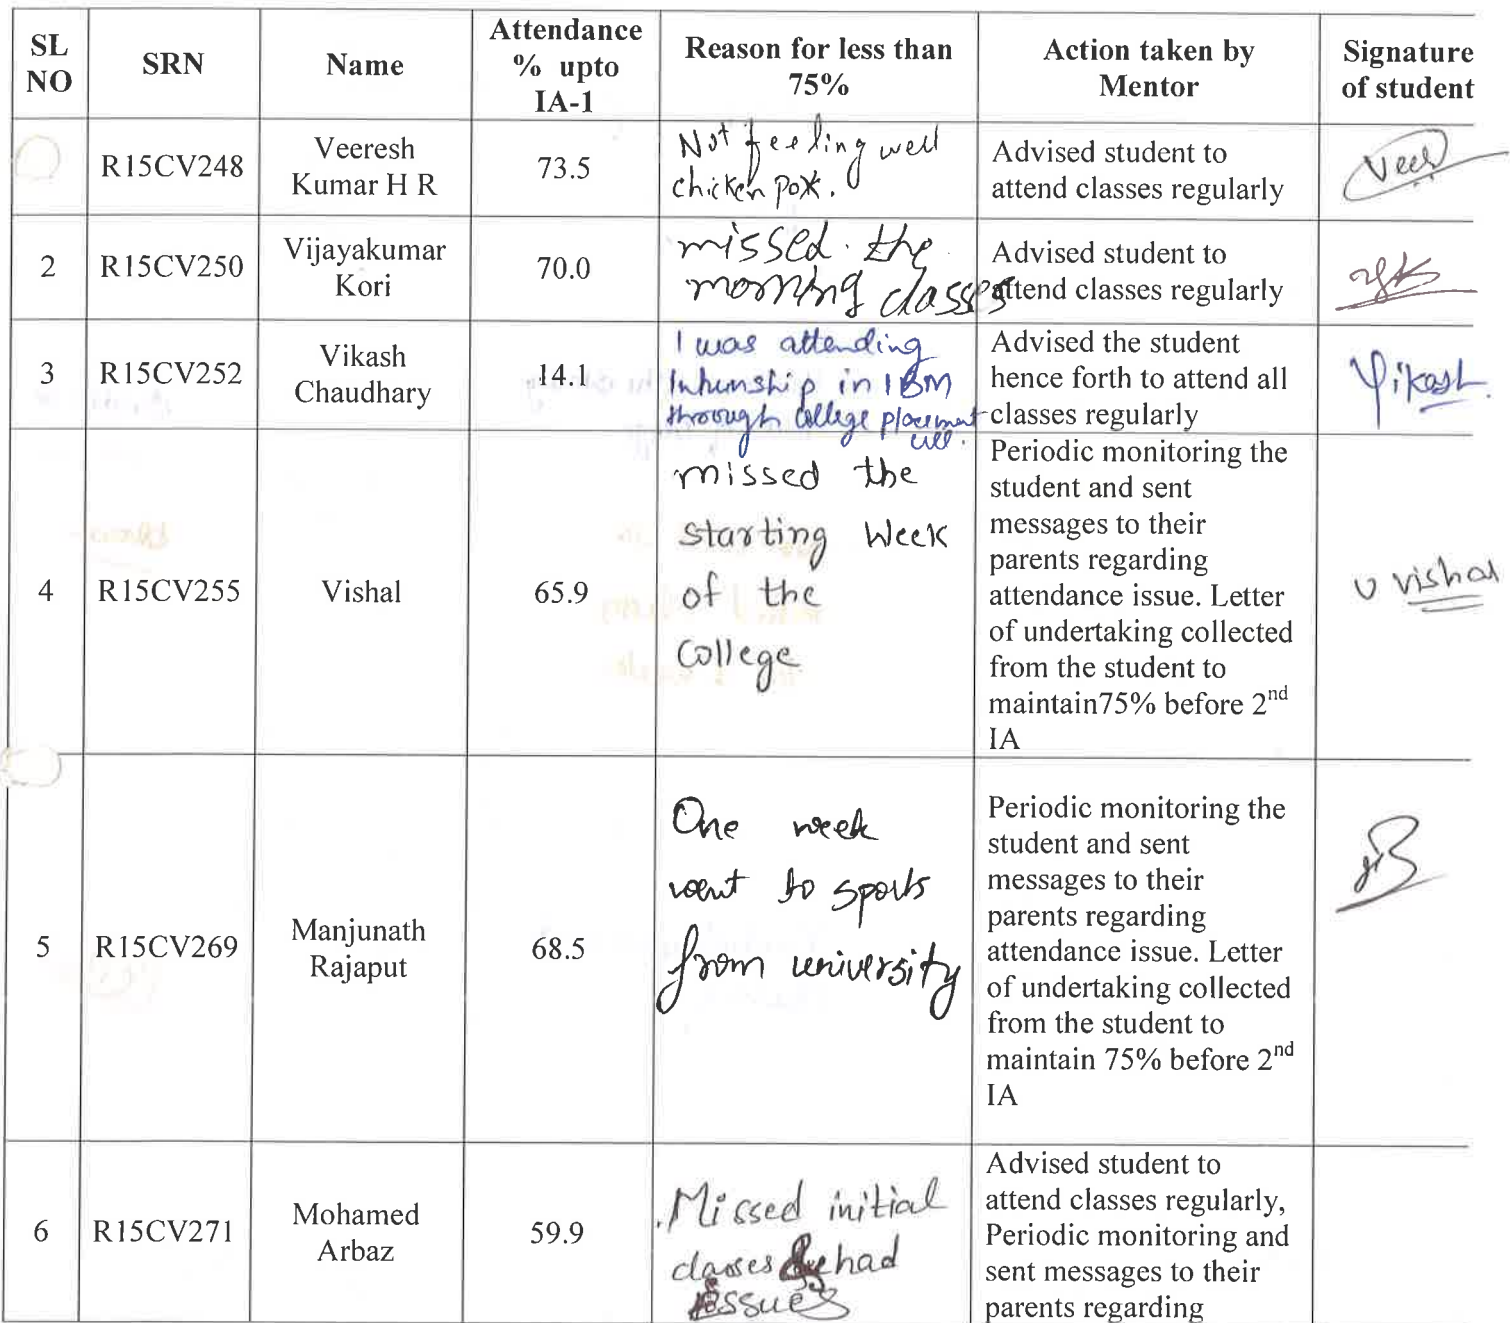 SL NO SRN Name Attendance % upto IA-1 Reason for less than 75% Action taken by Mentor Signature of student
R15CV248 Veeresh Kumar H R 73.5 Not feeling well chicken pox. Advised student to attend classes regularly Veer
2 R15CV250 Vijayakumar Kori 70.0 missed the morning classes Advised student to attend classes regularly
3 R15CV252 Vikash Chaudhary 14.1 I was attending Internship in IBM through college placement cell. Advised the student hence forth to attend all classes regularly Vikash
4 R15CV255 Vishal 65.9 missed the starting Week of the College Periodic monitoring the student and sent messages to their parents regarding attendance issue. Letter of undertaking collected from the student to maintain75% before 2nd IA U Vishal
5 R15CV269 Manjunath Rajaput 68.5 One week went to sports from university Periodic monitoring the student and sent messages to their parents regarding attendance issue. Letter of undertaking collected from the student to maintain 75% before 2nd IA
6 R15CV271 Mohamed Arbaz 59.9 Missed initial classes had issues Advised student to attend classes regularly, Periodic monitoring and sent messages to their parents regarding